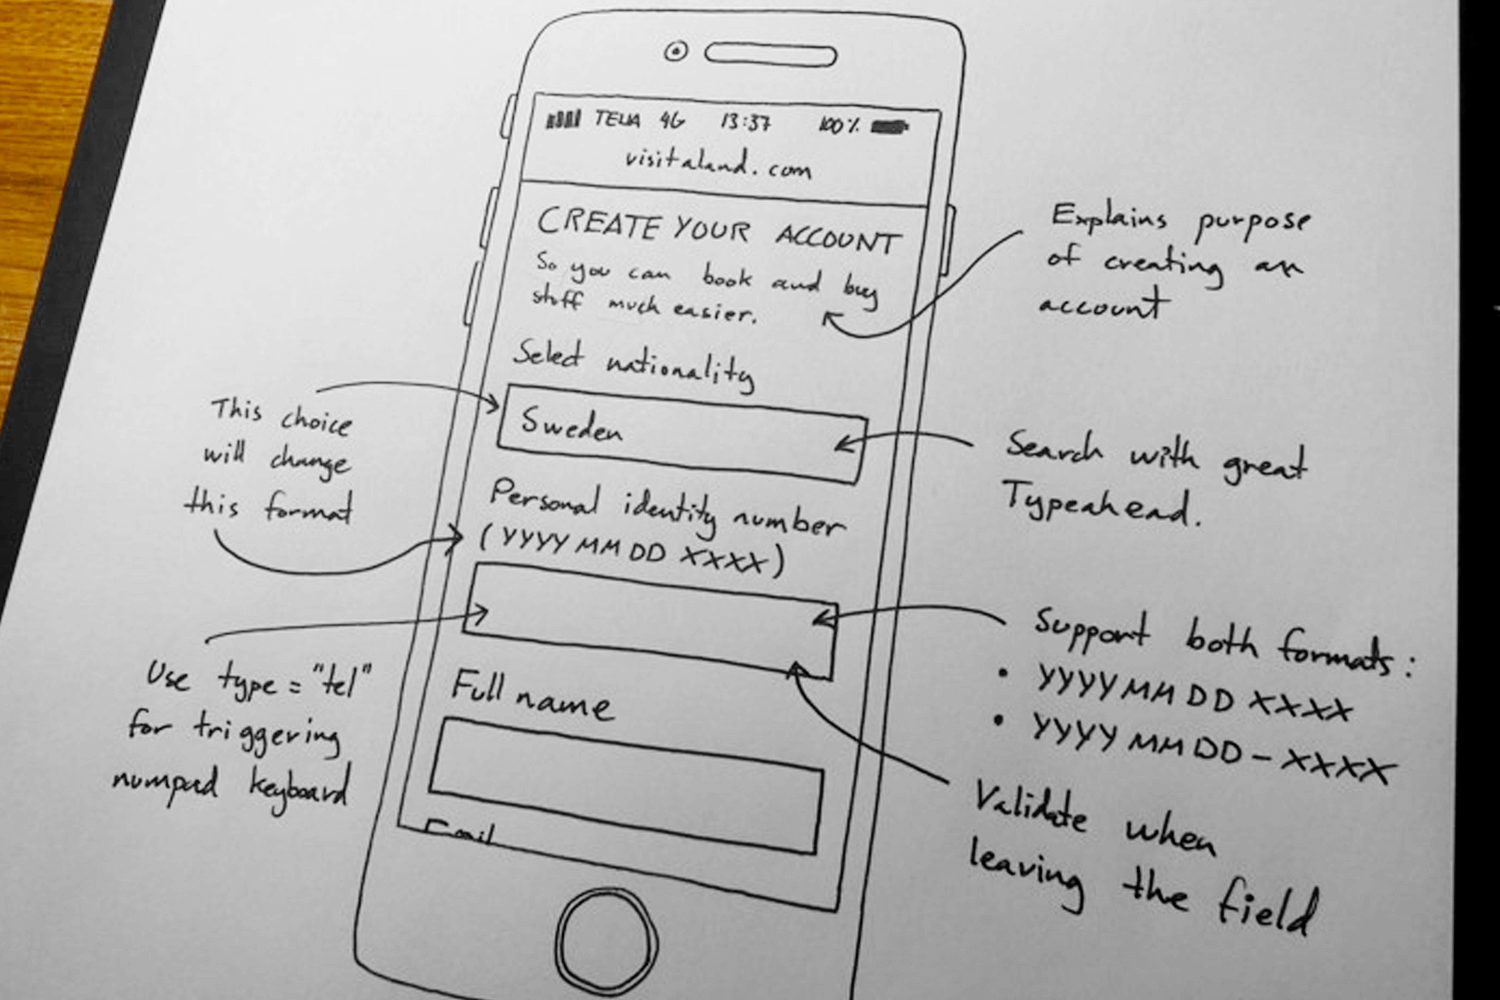 TELIA 4G 13:37 100%
visitaland.com
CREATE YOUR ACCOUNT
So you can book and buy
stuff much easier.
Select nationality
Sweden
Personal identity number
(YYYYMMDD XXXX)
Full name
Email
Explains purpose
of creating an
account
This choice
will change
this format
Search with great
Typeahead.
Use type="tel"
for triggering
numpad keyboard
Support both formats:
• YYYYMMDD XXXX
• YYYYMMDD-XXXX
Validate when
leaving the field